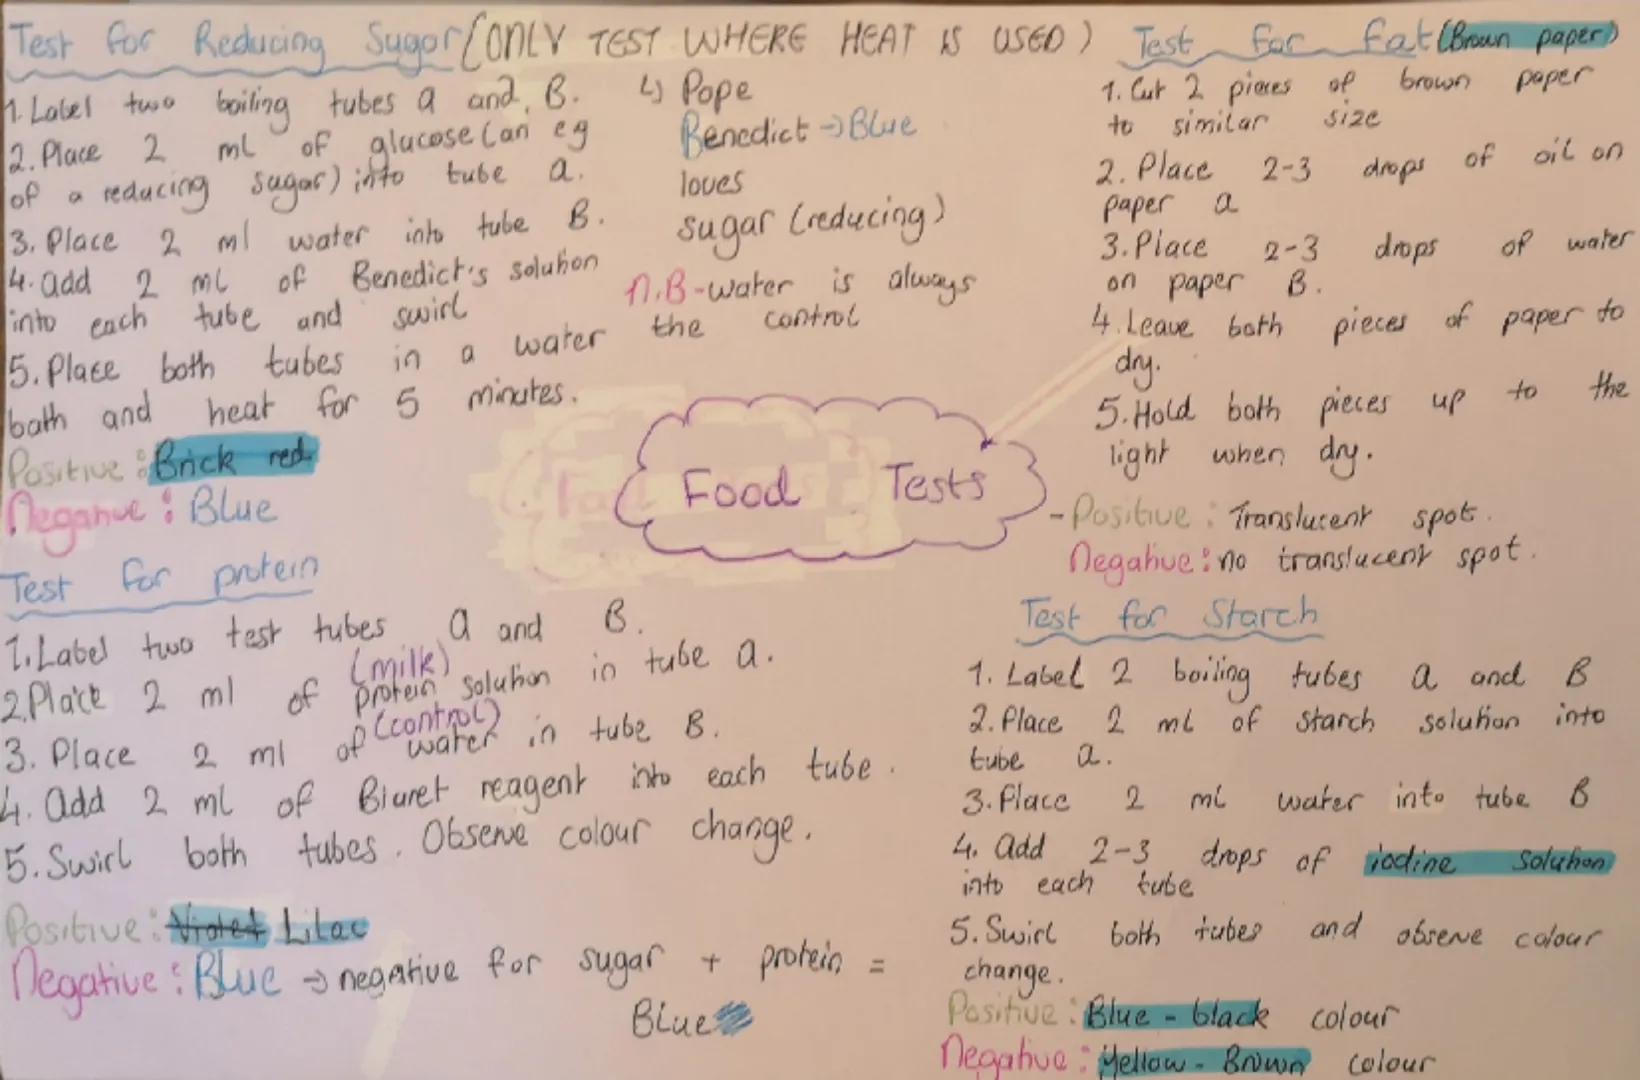 Test for Reducing Sugar (ONLY TEST WHERE HEAT IS USED)
1. Label two boiling tubes a and B.
2. Place 2 ml of glucose (an eg
of a reducing sugar) into tube a.
3. Place 2 ml water into tube B.
4. add 2 ml of Benedict's solution
into each tube and swirl
5. Place both tubes in a water
bath and heat for 5 minutes.
Positive: Brick red
Negative: Blue
↳ Pope
Benedict → Blue
loves
sugar (reducing)
N.B - water is always
the control
Test for fat (Brown paper)
1. Cut 2 pieces of brown paper
to similar size
2. Place 2-3 drops of oil on
paper a
3. Place 2-3 drops of water
on paper B.
4. Leave both pieces of paper to
dry.
5. Hold both pieces up to the
light when dry.
- Positive: Translucent spot.
Negative: no translucent spot.
Food Tests
Test for protein
1. Label two test tubes a and B.
(milk)
2. Place 2 ml of protein solution in tube a.
(control)
3. Place 2 ml of water in tube B.
4. add 2 ml of Biuret reagent into each tube.
5. Swirl both tubes. Observe colour change.
Positive: Violet Lilac
Negative: Blue → negative for sugar + protein =
Blue
Test for Starch
1. Label 2 boiling tubes a and B
2. Place 2 ml of starch solution into
tube a.
3. Place 2 ml water into tube B
4. add 2-3 drops of iodine solution
into each tube
5. Swirl both tubes and observe colour
change.
Positive: Blue - black colour
Negative: Yellow - Brown colour